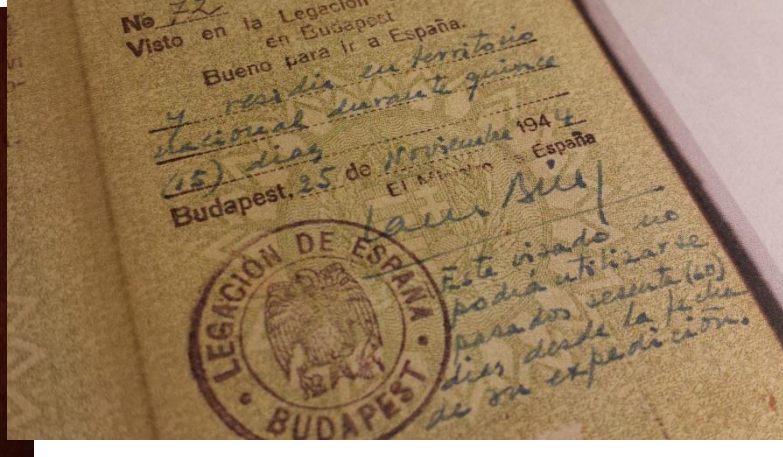 No 72
Visto en la Legación
en Budapest
Bueno para ir a España.
y residir en territorio
nacional durante quince
(15) dias
Budapest, 25 de Noviembre 1944
El Ministro España
LEGACIÓN DE ESPAÑA
BUDAPEST
Este visado no
podrá utilizarse
pasados sesenta (60)
dias desde la fecha
de su expedición.